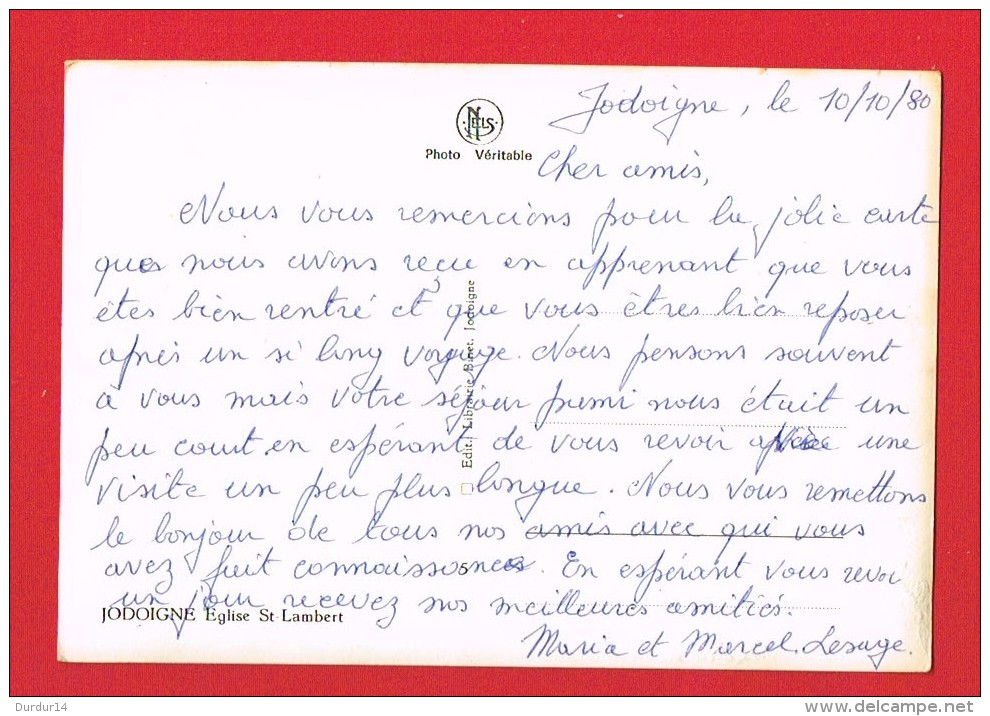 Jodoigne, le 10/10/80
NELS
Photo Véritable
Cher amis,
Nous vous remercions pour la jolie carte
que nous avons reçu en apprenant que vous
êtes bien rentré et que vous êtres bien reposer
aprés un si long voyage. Nous pensons souvent
à vous mais votre séjour parmi nous était un
peu court en espérant de vous revoir avec une
visite un peu plus longue. Nous vous remettons
le bonjour de tous nos amis avec qui vous
avez fait connaissances. En espérant vous revoi
un jour recevez nos meilleures amitiés.
Maria et Marcel. Lesage.
Edit. Librairie Binet, Jodoigne
5
JODOIGNE Église St-Lambert
Durdur14
http://www.delcampe.net